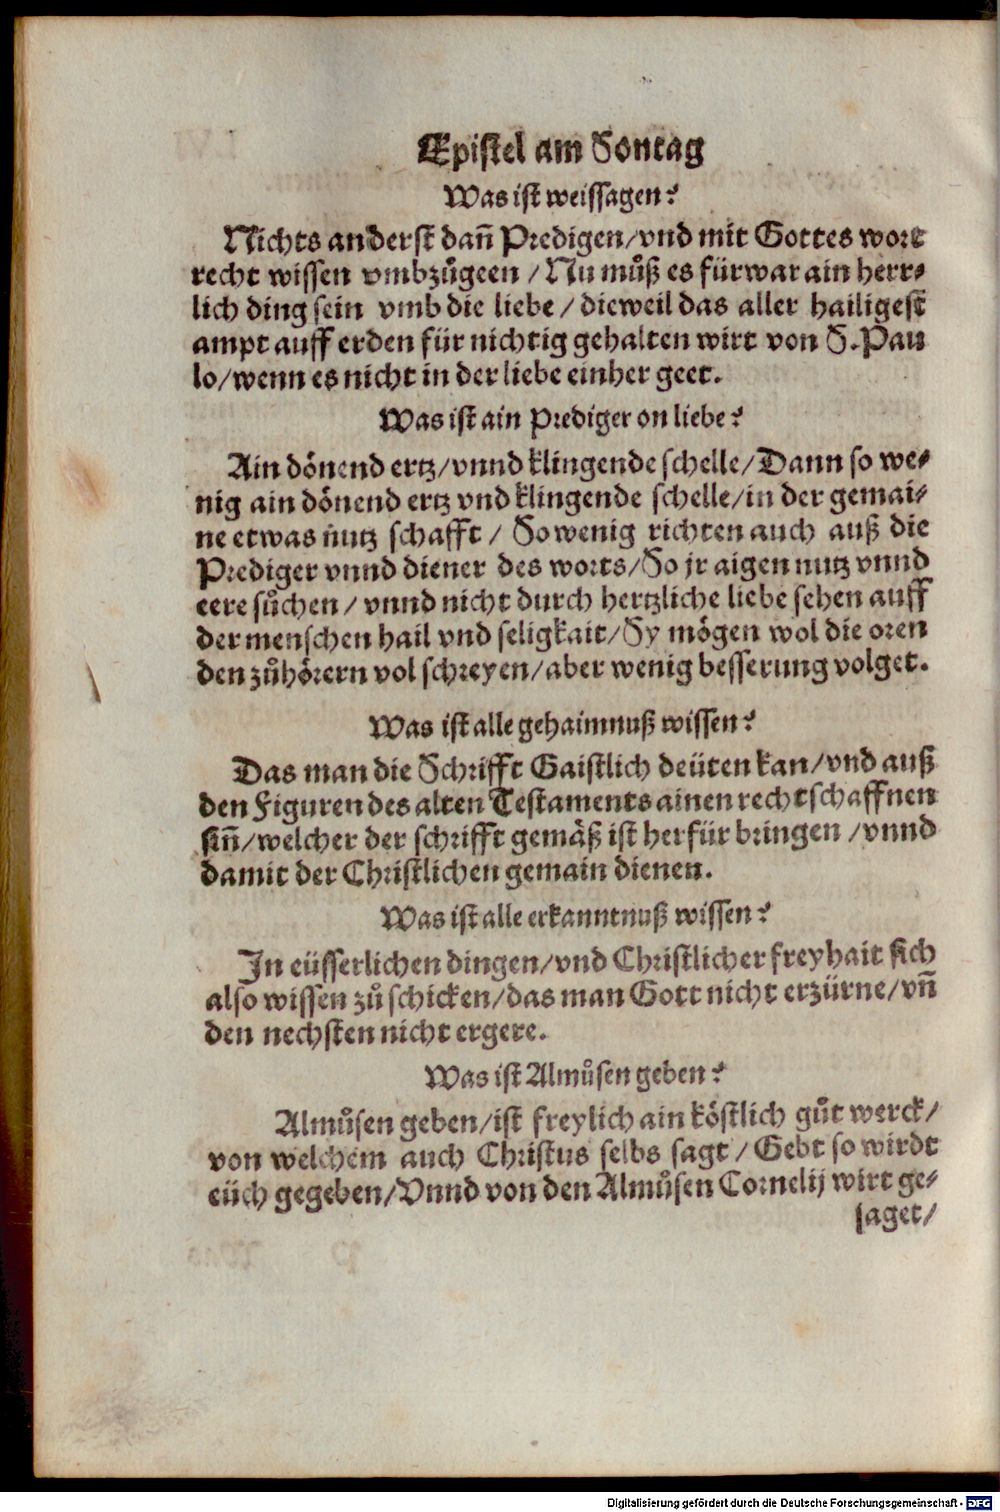 Epistel am Sontag
Was ist weissagen?
Nichts anderst dañ Predigen/vnd mit Gottes wort
recht wissen vmbzůgeen / Nu můß es fürwar ain herr-
lich ding sein vmb die liebe / dieweil das aller hailigest
ampt auff erden für nichtig gehalten wirt von S. Pau
lo/wenn es nicht in der liebe einher geet.
Was ist ain Prediger on liebe?
Ain dönend ertz/vnnd klingende schelle/Dann so we-
nig ain dönend ertz vnd klingende schelle/in der gemai-
ne etwas nutz schafft / So wenig richten auch auß die
Prediger vnnd diener des worts/So jr aigen nutz vnnd
eere sůchen / vnnd nicht durch hertzliche liebe sehen auff
der menschen hail vnd seligkait/Sy mögen wol die oren
den zůhörern vol schreyen/aber wenig besserung volget.
Was ist alle gehaimnuß wissen?
Das man die Schrifft Gaistlich deüten kan/vnd auß
den Figuren des alten Testaments ainen rechtschaffnen
siñ/welcher der schrifft gemäß ist herfür bringen /vnnd
damit der Christlichen gemain dienen.
Was ist alle erkanntnuß wissen?
In eüsserlichen dingen/vnd Christlicher freyhait sich
also wissen zů schicken/das man Gott nicht erzürne/vñ
den nechsten nicht ergere.
Was ist Almůsen geben?
Almůsen geben/ist freylich ain köstlich gůt werck/
von welchem auch Christus selbs sagt / Gebt so wirdt
eüch gegeben/Vnnd von den Almůsen Cornelij wirt ge-
saget/
Digitalisierung gefördert durch die Deutsche Forschungsgemeinschaft - DFG